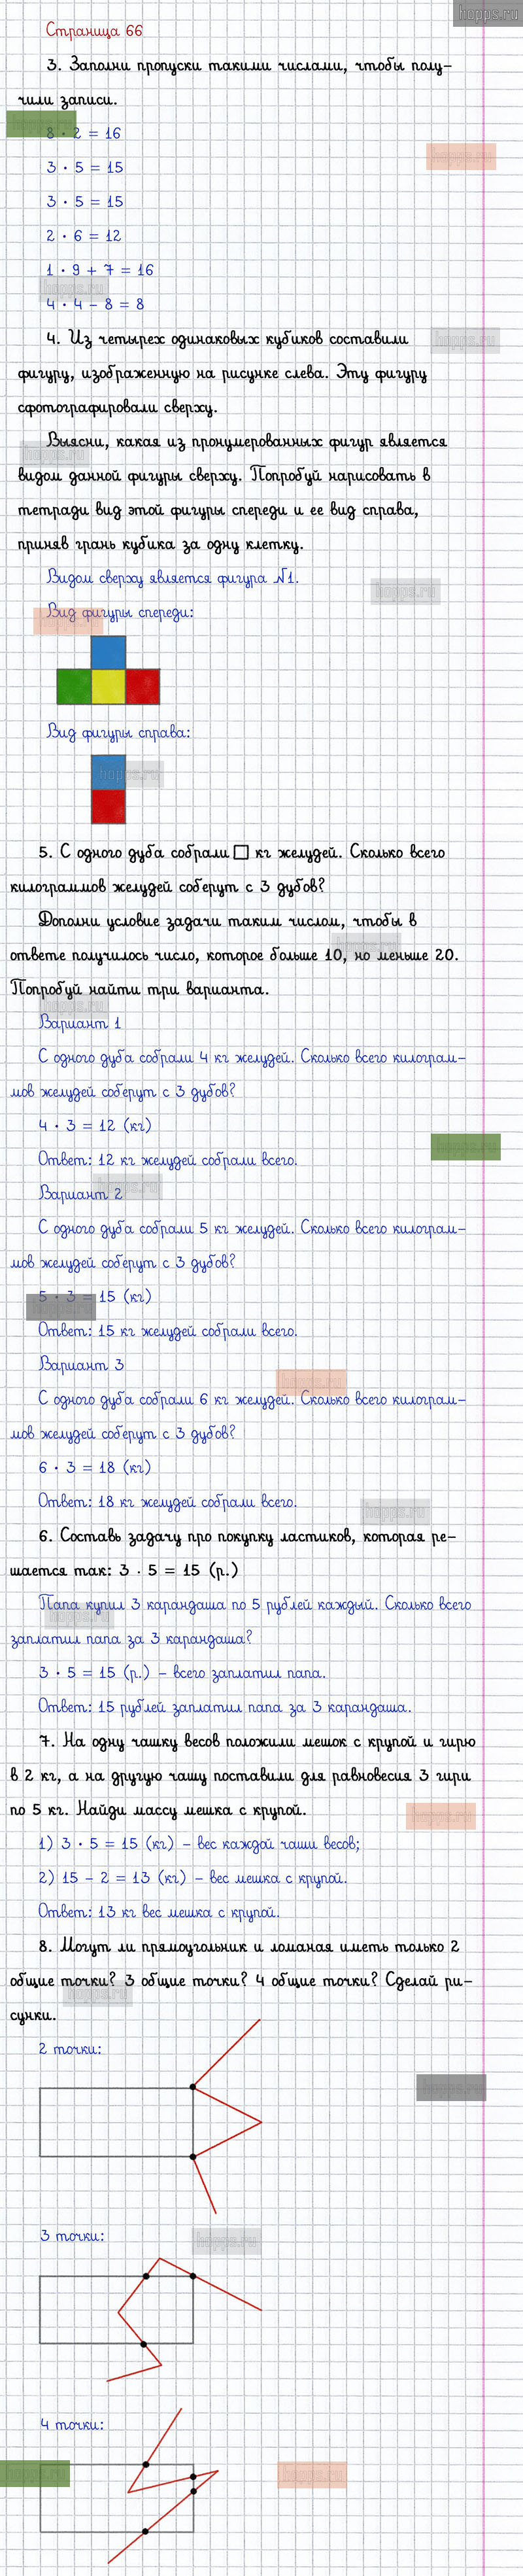 hopps.ru
Страница 66
3. Заполни пропуски такими числами, чтобы полу-
чили записи.
8 · 2 = 16
3 · 5 = 15
3 · 5 = 15
2 · 6 = 12
1 · 9 + 7 = 16
4 · 4 – 8 = 8
4. Из четырех одинаковых кубиков составили
фигуру, изображенную на рисунке слева. Эту фигуру
сфотографировали сверху.
Выясни, какая из пронумерованных фигур является
видом данной фигуры сверху. Попробуй нарисовать в
тетради вид этой фигуры спереди и ее вид справа,
приняв грань кубика за одну клетку.
Видом сверху является фигура №1.
Вид фигуры спереди:
Вид фигуры справа:
5. С одного дуба собрали □ кг желудей. Сколько всего
килограммов желудей соберут с 3 дубов?
Дополни условие задачи таким числом, чтобы в
ответе получилось число, которое больше 10, но меньше 20.
Попробуй найти три варианта.
Вариант 1
С одного дуба собрали 4 кг желудей. Сколько всего килограм-
мов желудей соберут с 3 дубов?
4 · 3 = 12 (кг)
Ответ: 12 кг желудей собрали всего.
Вариант 2
С одного дуба собрали 5 кг желудей. Сколько всего килограм-
мов желудей соберут с 3 дубов?
5 · 3 = 15 (кг)
Ответ: 15 кг желудей собрали всего.
Вариант 3
С одного дуба собрали 6 кг желудей. Сколько всего килограм-
мов желудей соберут с 3 дубов?
6 · 3 = 18 (кг)
Ответ: 18 кг желудей собрали всего.
6. Составь задачу про покупку ластиков, которая ре-
шается так: 3 · 5 = 15 (р.)
Папа купил 3 карандаша по 5 рублей каждый. Сколько всего
заплатил папа за 3 карандаша?
3 · 5 = 15 (р.) – всего заплатил папа.
Ответ: 15 рублей заплатил папа за 3 карандаша.
7. На одну чашку весов положили мешок с крупой и гирю
в 2 кг, а на другую чашу поставили для равновесия 3 гири
по 5 кг. Найди массу мешка с крупой.
1) 3 · 5 = 15 (кг) – вес каждой чаши весов;
2) 15 – 2 = 13 (кг) – вес мешка с крупой.
Ответ: 13 кг вес мешка с крупой.
8. Могут ли прямоугольник и ломаная иметь только 2
общие точки? 3 общие точки? 4 общие точки? Сделай ри-
сунки.
2 точки:
3 точки:
4 точки: